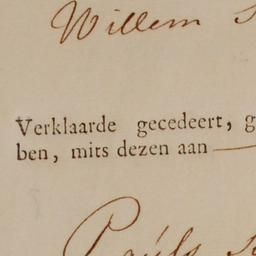 Willem
Verklaarde gecedeert, g
ben, mits dezen aan
Pauls